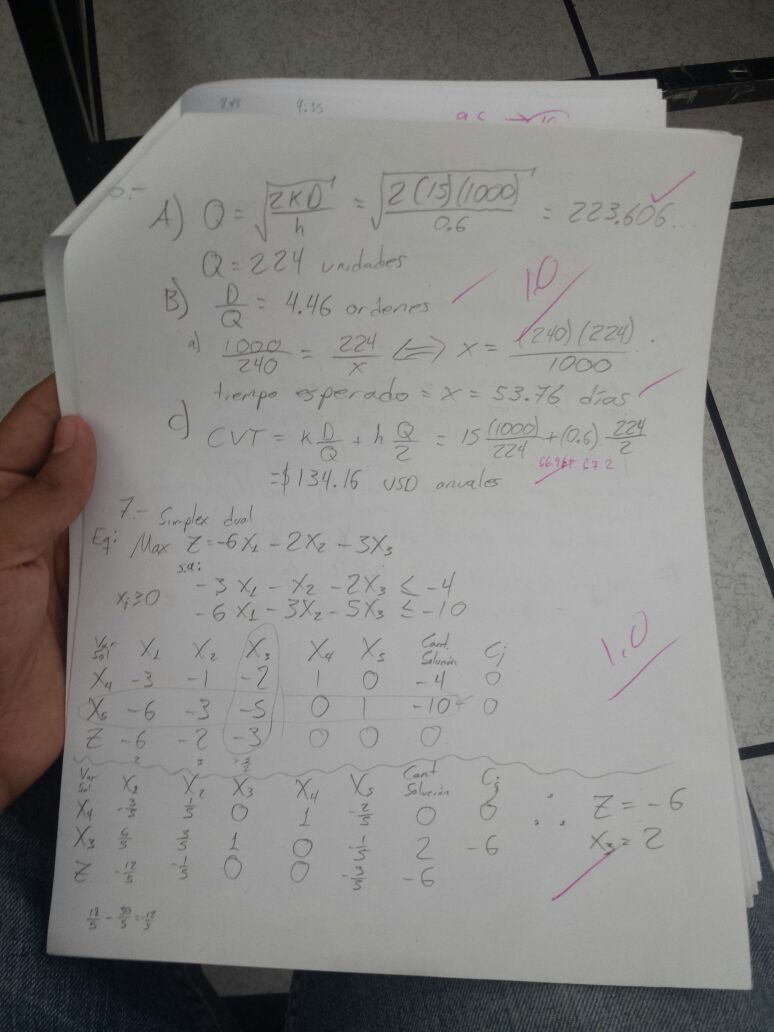 9:35
6.-
A) Q = √(2KD/h) = √(2(15)(1000)/0.6) = 223.606...
Q = 224 unidades
B) D/Q = 4.46 ordenes
1.0
a) 1000/240 = 224/x ⟺ x = (240)(224)/1000.
tiempo esperado = x = 53.76 días
C) CVT = K D/Q + h Q/2 = 15 (1000)/224 + (0.6) 224/2
66.964 67.2
=$134.16 USD anuales
7.- Simplex dual
Max Z=-6X1 - 2X2 - 3X3
s.a:
-3X1 - X2 - 2X3 ≤ -4
xj≥0 -6X1 - 3X2 - 5X3 ≤ -10
1.0
Var sol X1 X2 X3 X4 X5 Cant. Solución Cj
X4 -3 -1 -2 1 0 -4 0
X5 -6 -3 -5 0 1 -10 0
Z -6 -2 -3 0 0 0
Var sol X1 X2 X3 X4 X5 Cant Solución Cj
X4 -3/5 1/5 0 1 -2/5 0 0
X3 6/5 3/5 1 0 -1/5 2 -6
Z -12/5 -1/5 0 0 -3/5 -6
∴ Z = -6
X3 = 2